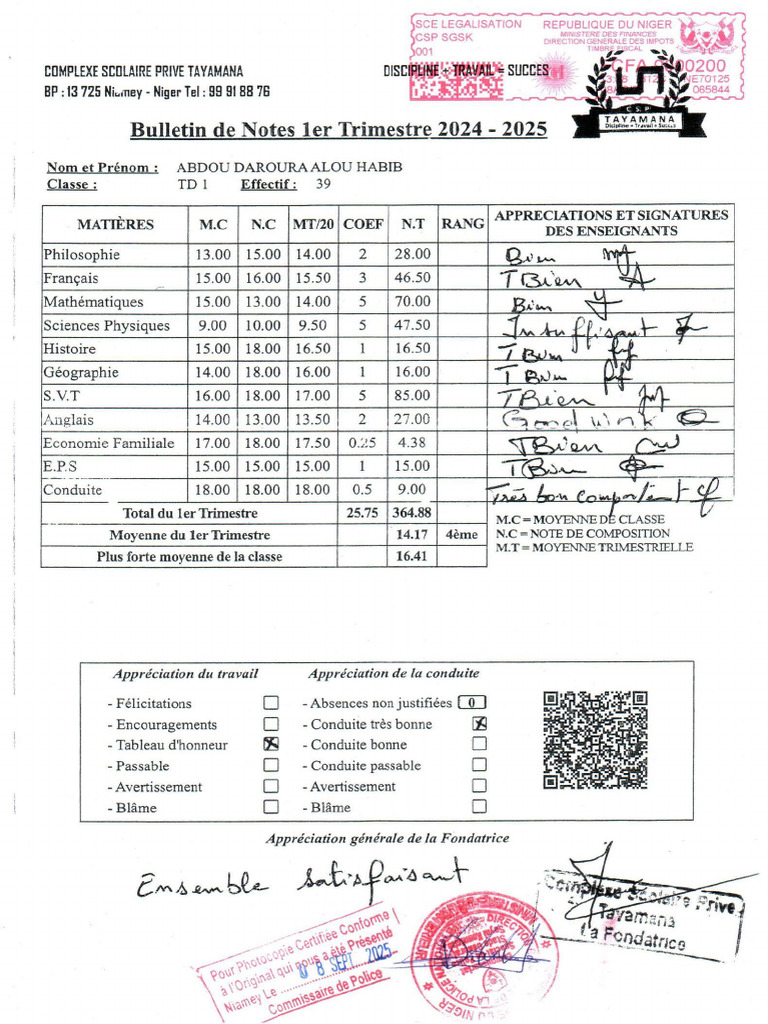 SCE LEGALISATION
CSP SGSK
001
REPUBLIQUE DU NIGER
MINISTERE DES FINANCES
DIRECTION GENERALE DES IMPOTS
TIMBRE FISCAL
NE70125
065844
COMPLEXE SCOLAIRE PRIVE TAYAMANA
BP : 13 725 Niamey - Niger Tel : 99 91 88 76
DISCIPLINE + TRAVAIL = SUCCES
C.S.P
TAYAMANA
Discipline + Travail = Succès
Bulletin de Notes 1er Trimestre 2024 - 2025
Nom et Prénom : ABDOU DAROURA ALOU HABIB
Classe : TD 1 Effectif : 39
MATIÈRES M.C N.C MT/20 COEF N.T RANG APPRECIATIONS ET SIGNATURES DES ENSEIGNANTS
Philosophie 13.00 15.00 14.00 2 28.00 Bien
Français 15.00 16.00 15.50 3 46.50 TBien
Mathématiques 15.00 13.00 14.00 5 70.00 Bien
Sciences Physiques 9.00 10.00 9.50 5 47.50 Insuffisant
Histoire 15.00 18.00 16.50 1 16.50 TBien
Géographie 14.00 18.00 16.00 1 16.00 TBien
S.V.T 16.00 18.00 17.00 5 85.00 TBien
Anglais 14.00 13.00 13.50 2 27.00 Good work
Economie Familiale 17.00 18.00 17.50 0.25 4.38 TBien
E.P.S 15.00 15.00 15.00 1 15.00 TBien
Conduite 18.00 18.00 18.00 0.5 9.00 Très bon comportent
Total du 1er Trimestre 25.75 364.88
Moyenne du 1er Trimestre 14.17 4ème
Plus forte moyenne de la classe 16.41
M.C = MOYENNE DE CLASSE
N.C = NOTE DE COMPOSITION
M.T = MOYENNE TRIMESTRIELLE
Appréciation du travail Appréciation de la conduite
- Félicitations - Absences non justifiées 0
- Encouragements - Conduite très bonne X
- Tableau d'honneur X - Conduite bonne
- Passable - Conduite passable
- Avertissement - Avertissement
- Blâme - Blâme
Appréciation générale de la Fondatrice
Ensemble satisfaisant
Complexe Scolaire Privé
Tayamana
La Fondatrice
Pour Photocopie Certifiée Conforme
à l'Original qui nous a été Présenté
Niamey Le 08 SEPT. 2025
Commissaire de Police